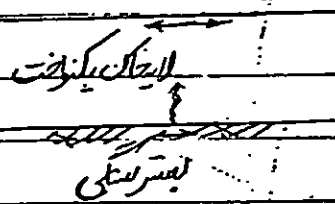 لایه خاک یکنواخت
بستر سنگی